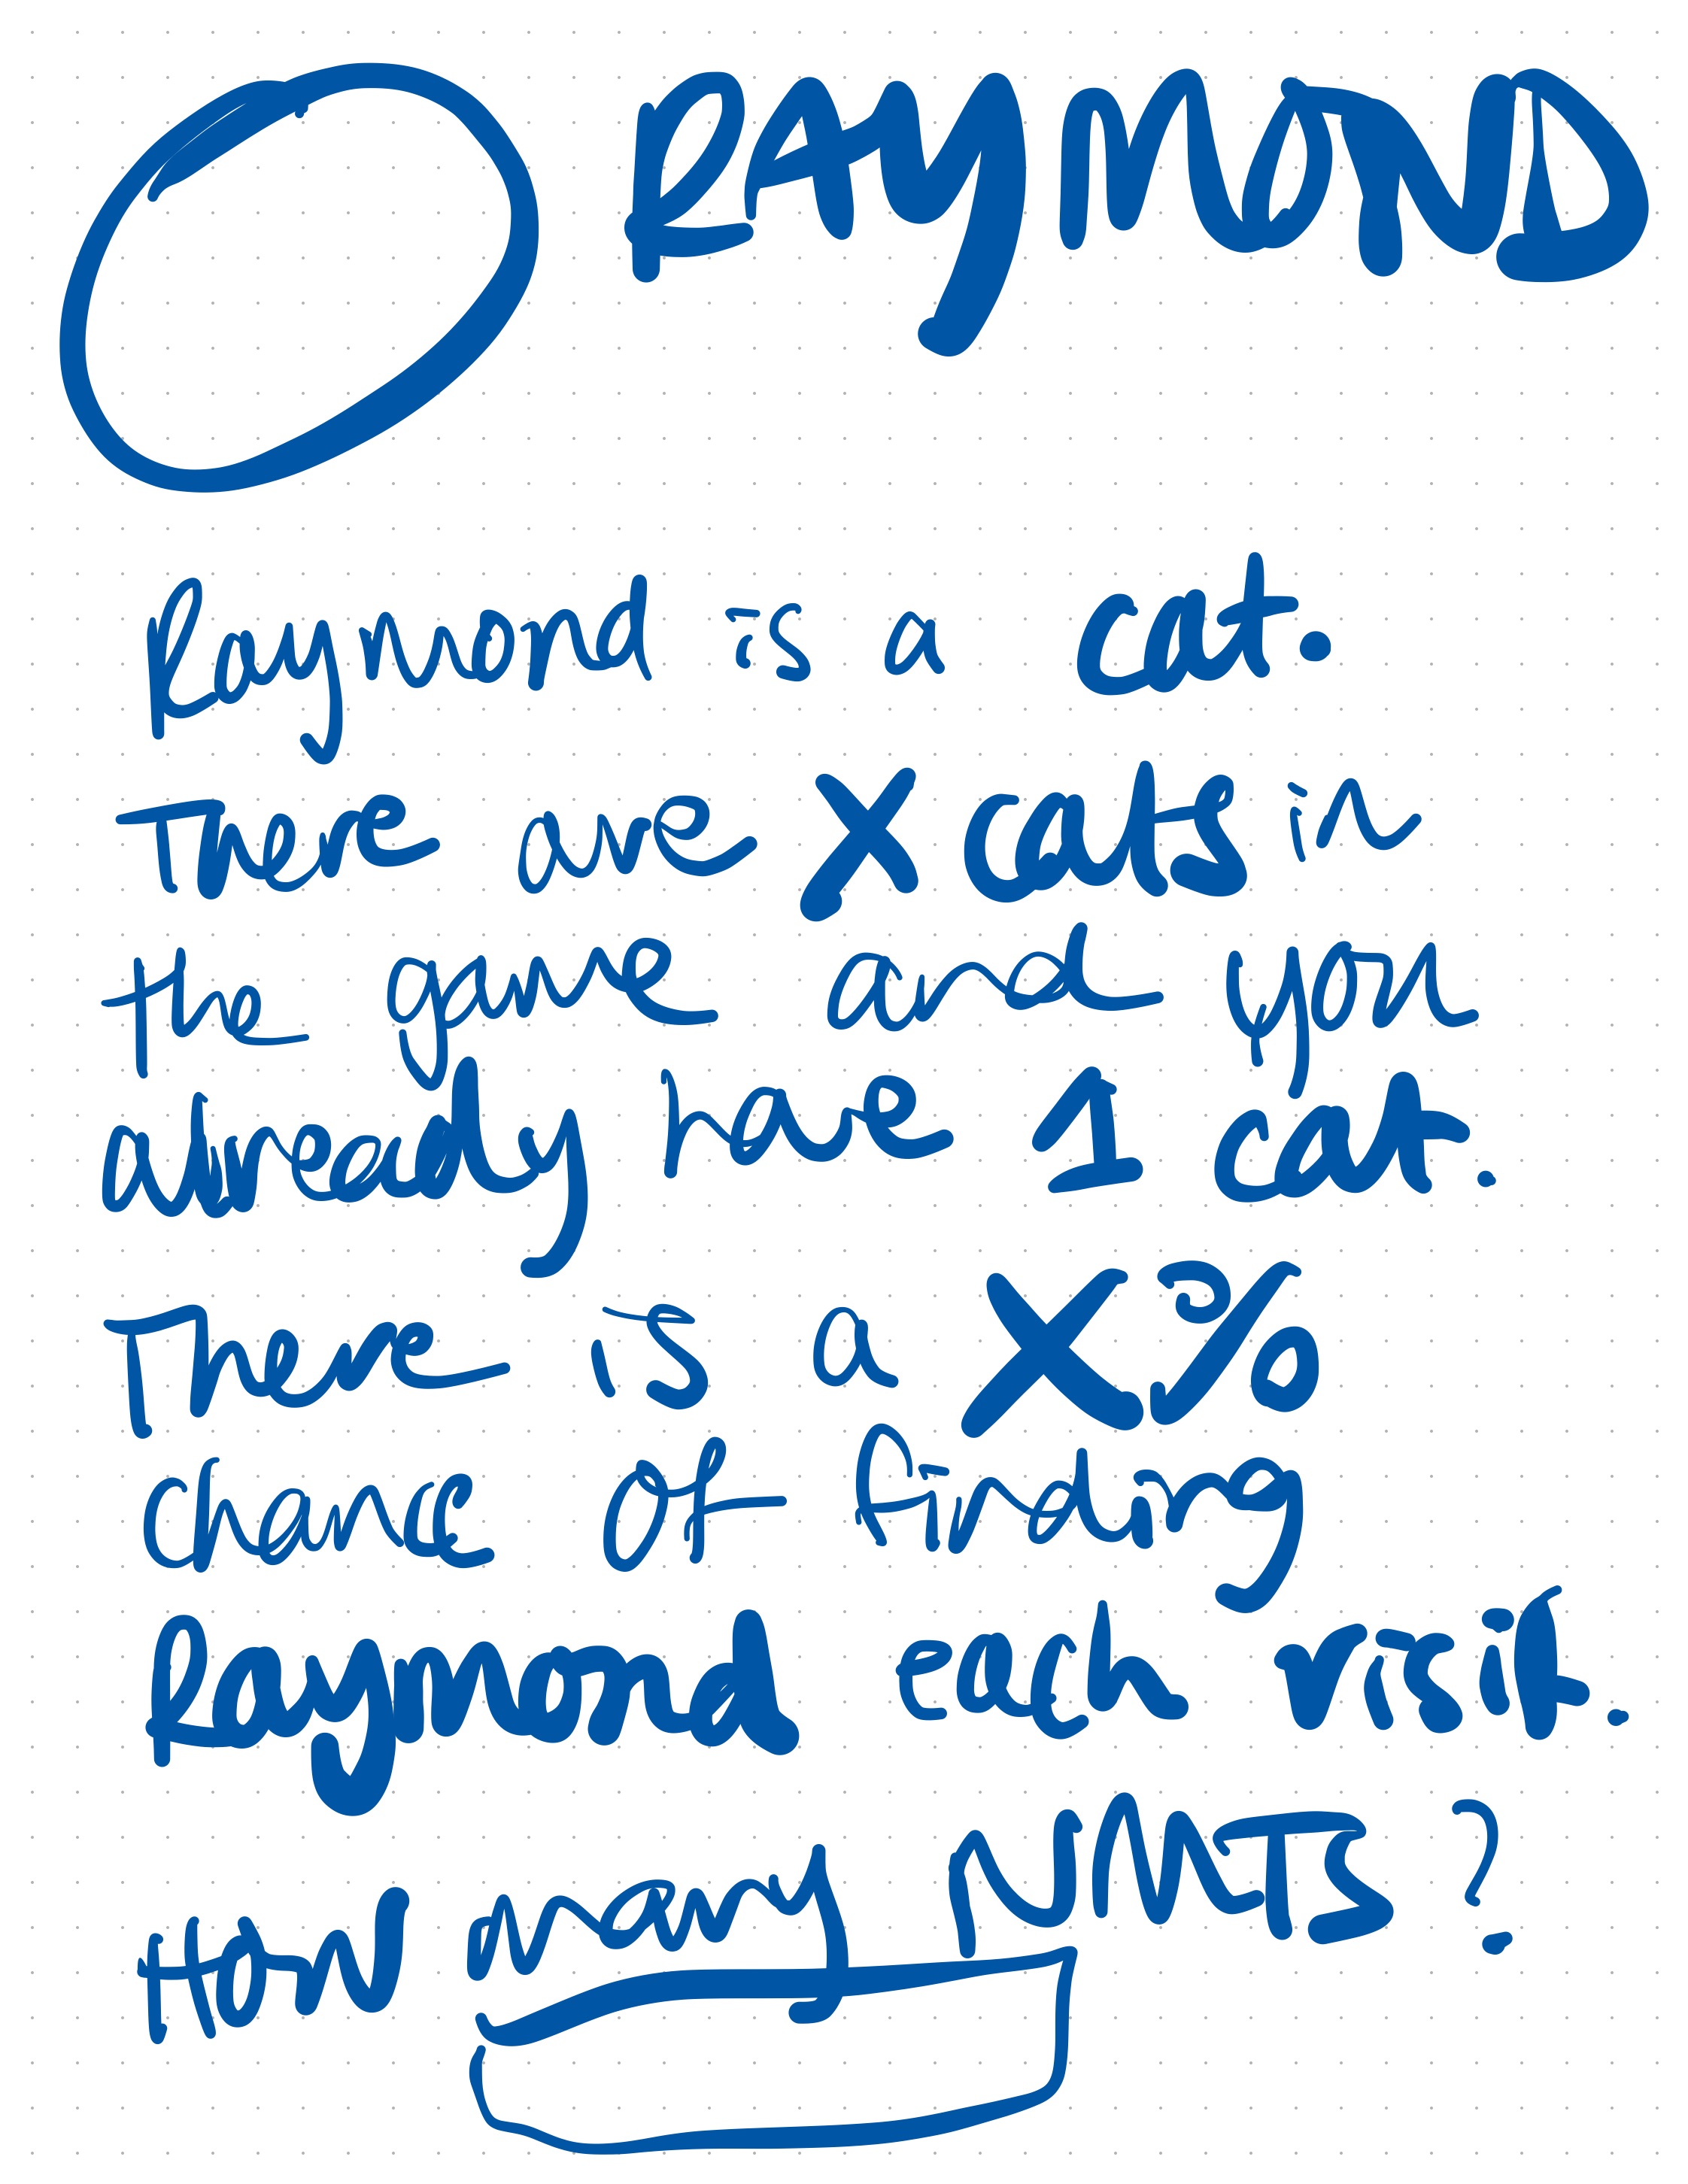 RAYMOND
Raymond is a cat.
There are X cats in
the game and you
already have 1 cat.
There is a X%
chance of finding
Raymond each visit.
How many NMTs?